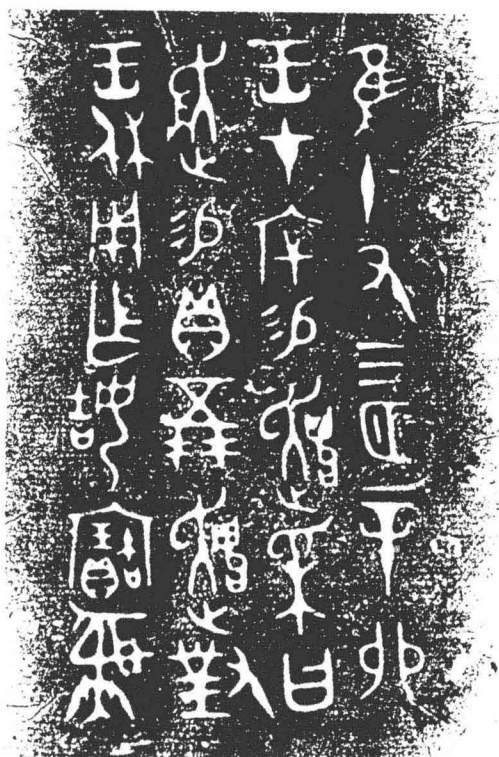 隹十又三月辛卯
王才斥易趞采曰
易貝五朋趞對
王休用乍姞寶彝